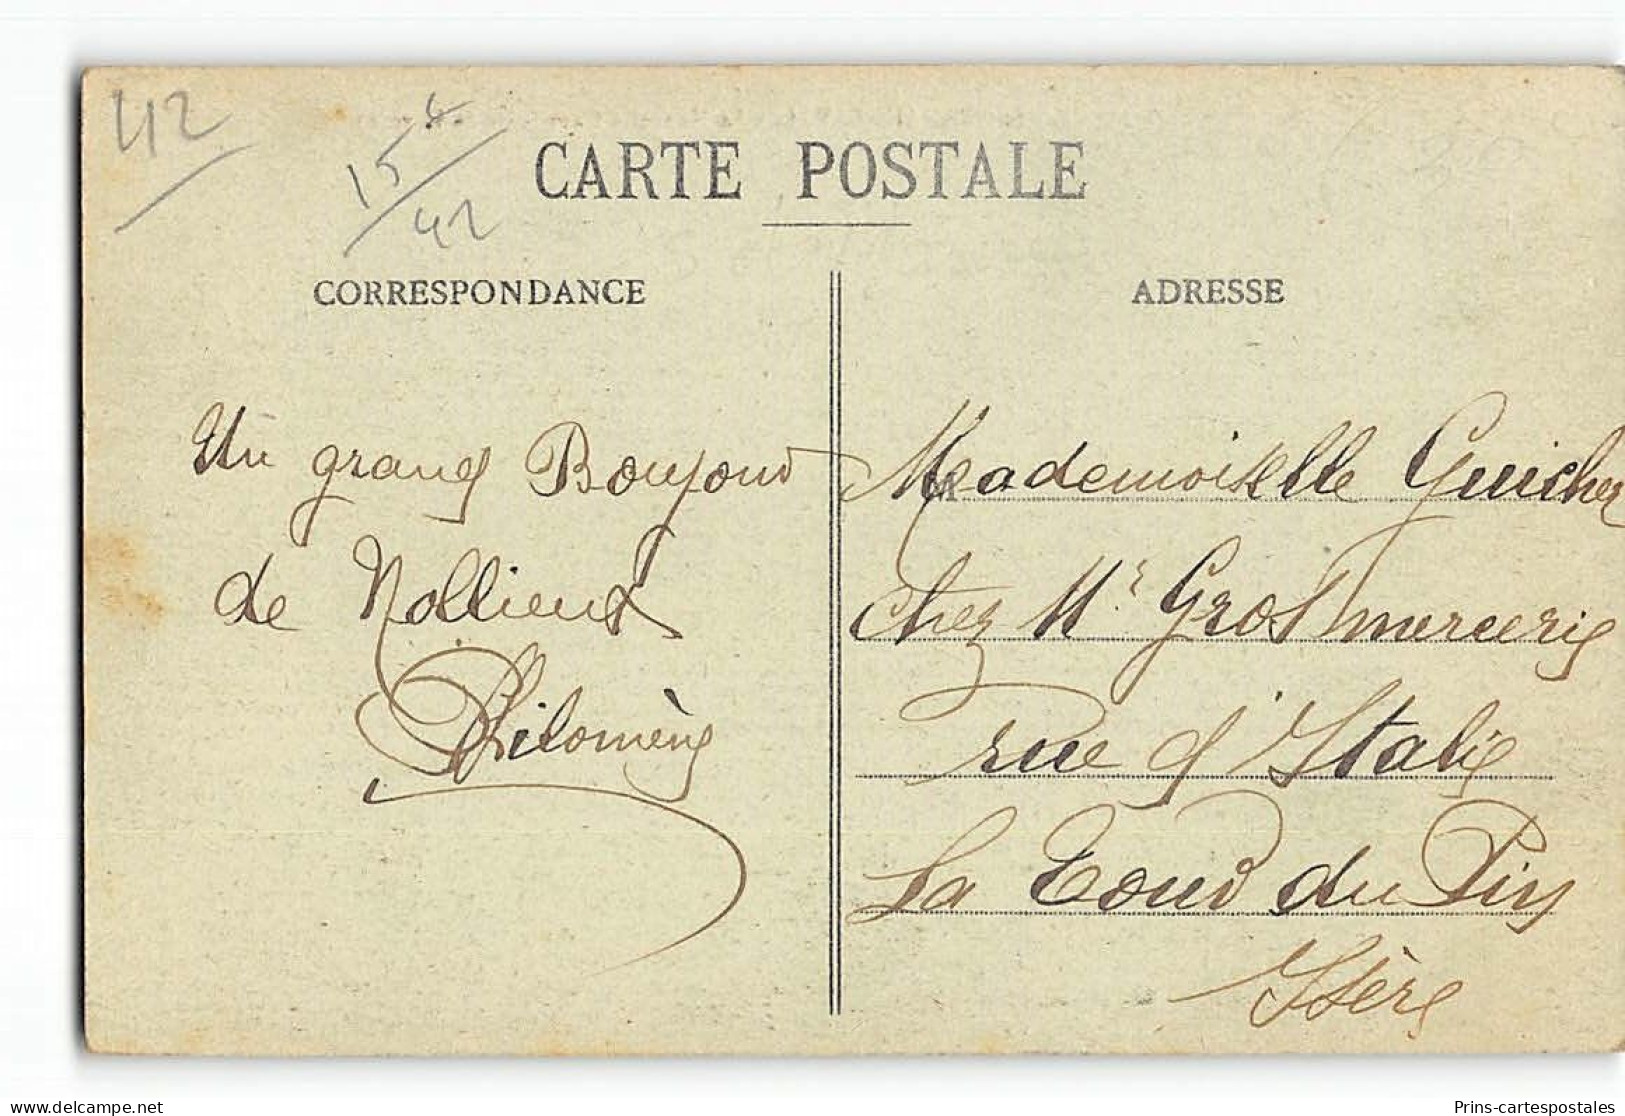 42
15 f.
42
CARTE POSTALE
CORRESPONDANCE
ADRESSE
Un grand Bonjour
de Nollieux
Philomène
M
Mademoiselle Guicher
chez Mr Gros mercerie
rue d'Italie
La Tour du Pin
Isère
delcampe.net
Prins-cartespostales